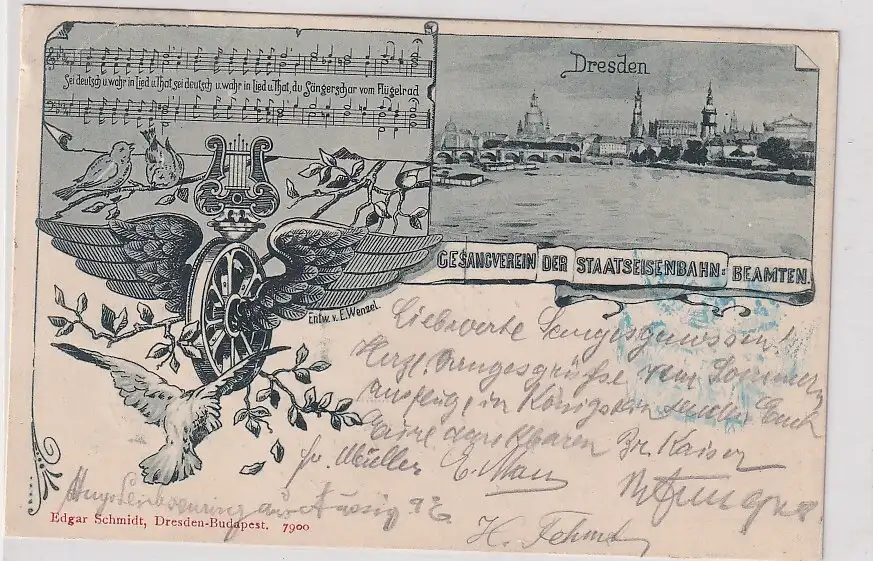 Sei deutsch u. wahr in Lied u. That, sei deutsch u. wahr in Lied u. That, du Sängerschar vom Flügelrad
Dresden
GESANGVEREIN DER STAATSEISENBAHN-BEAMTEN.
Entw. v. E. Wenzel.
Liebwerte Sangesgenossen!
Herzl. Sangesgrüsse vom Sommer
ausfluge in Königstein senden Euch
Eure dankbaren Br. Kaiser
Fr. Müller E. May
aus Aussig
H. Fehm
Edgar Schmidt, Dresden-Budapest. 7900